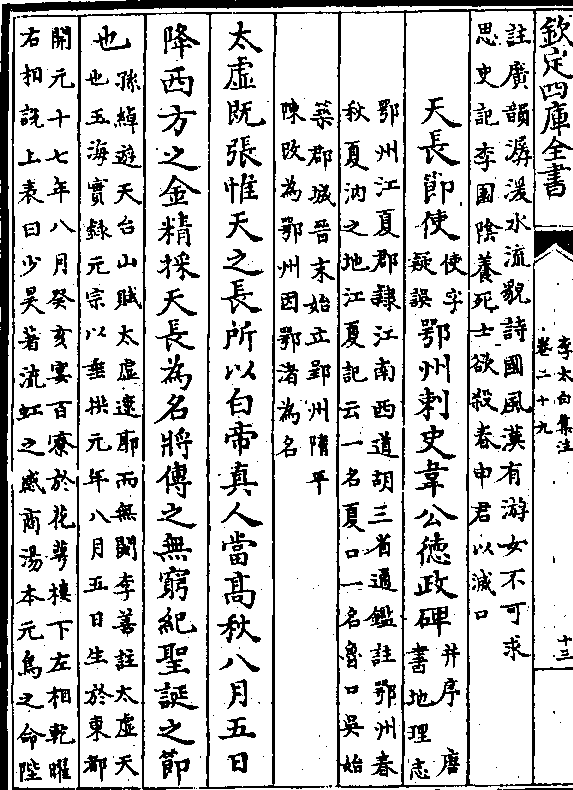 欽定四庫全書
李太白集注
卷二十九
十三
註廣韻潺湲水流貌詩國風漢有游女不可求
思史記李園陰養死士欲殺春申君以滅口
天長節使
使字
疑誤
鄂州刺史韋公德政碑
并序 唐
書地理志
鄂州江夏郡隸江南西道胡三省通鑑註鄂州春
秋夏汭之地江夏記云一名夏口一名魯口吳始
築郡城晉末始立郢州隋平
陳改為鄂州因鄂渚為名
太虛既張惟天之長所以白帝真人當高秋八月五日
降西方之金精採天長為名將傳之無窮紀聖誕之節
也
孫綽遊天台山賦太虛遼廓而無閡李善註太虛天
也玉海實錄元宗以垂拱元年八月五日生於東都
開元十七年八月癸亥宴百寮於花萼樓下左相乾曜
右相說上表曰少昊著流虹之感商湯本元鳥之命陛